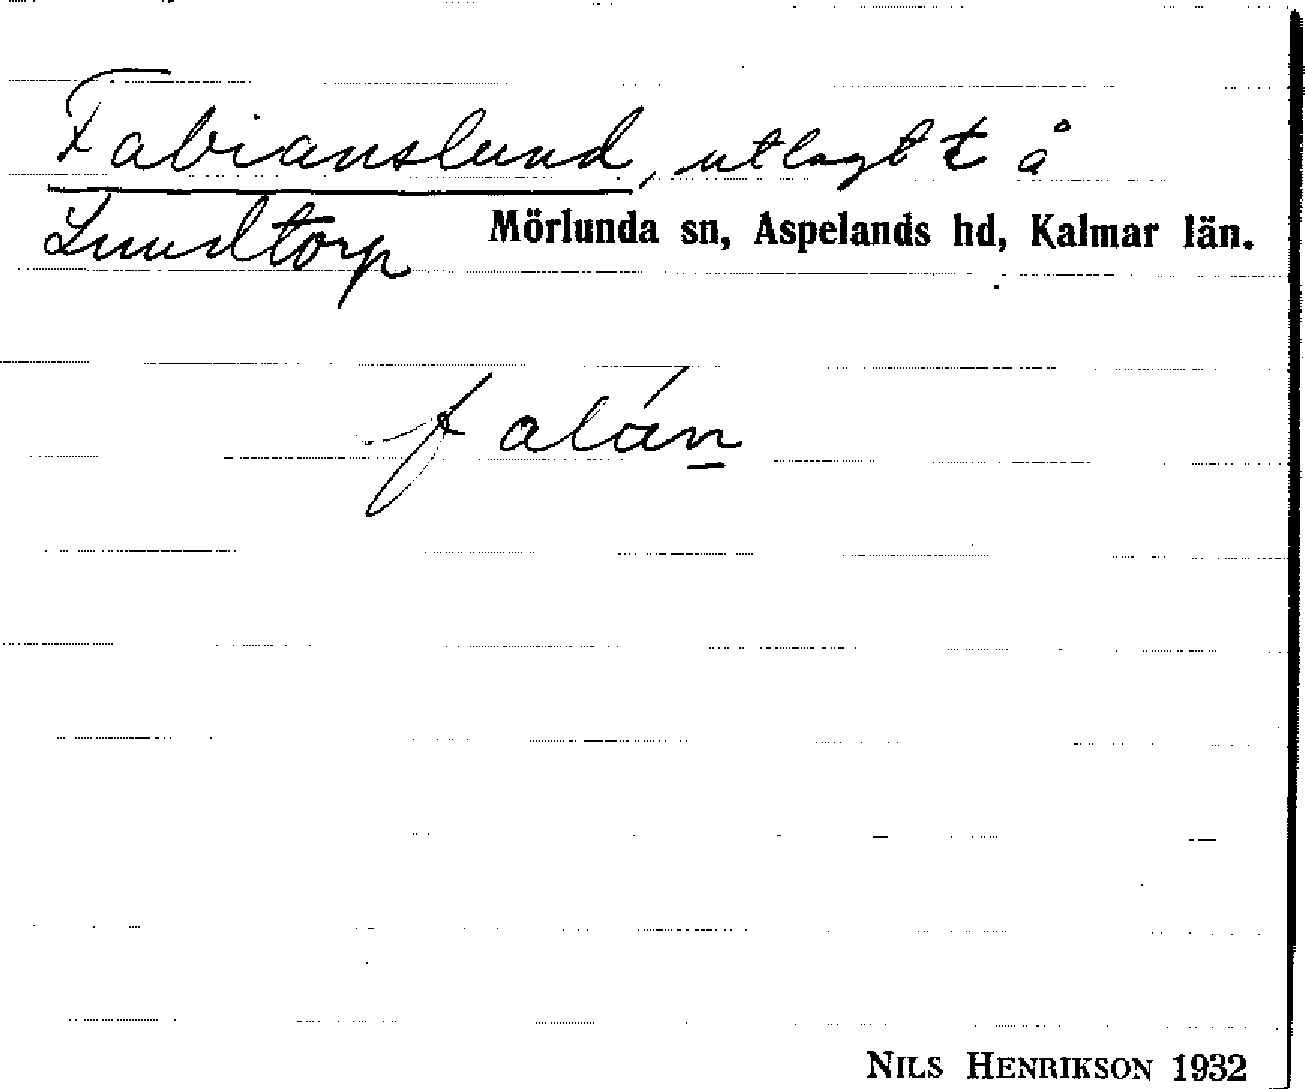 Fabianslund, utlagt t å
Lundtorp Mörlunda sn, Aspelands hd, Kalmar län.
NILS HENRIKSON 1932